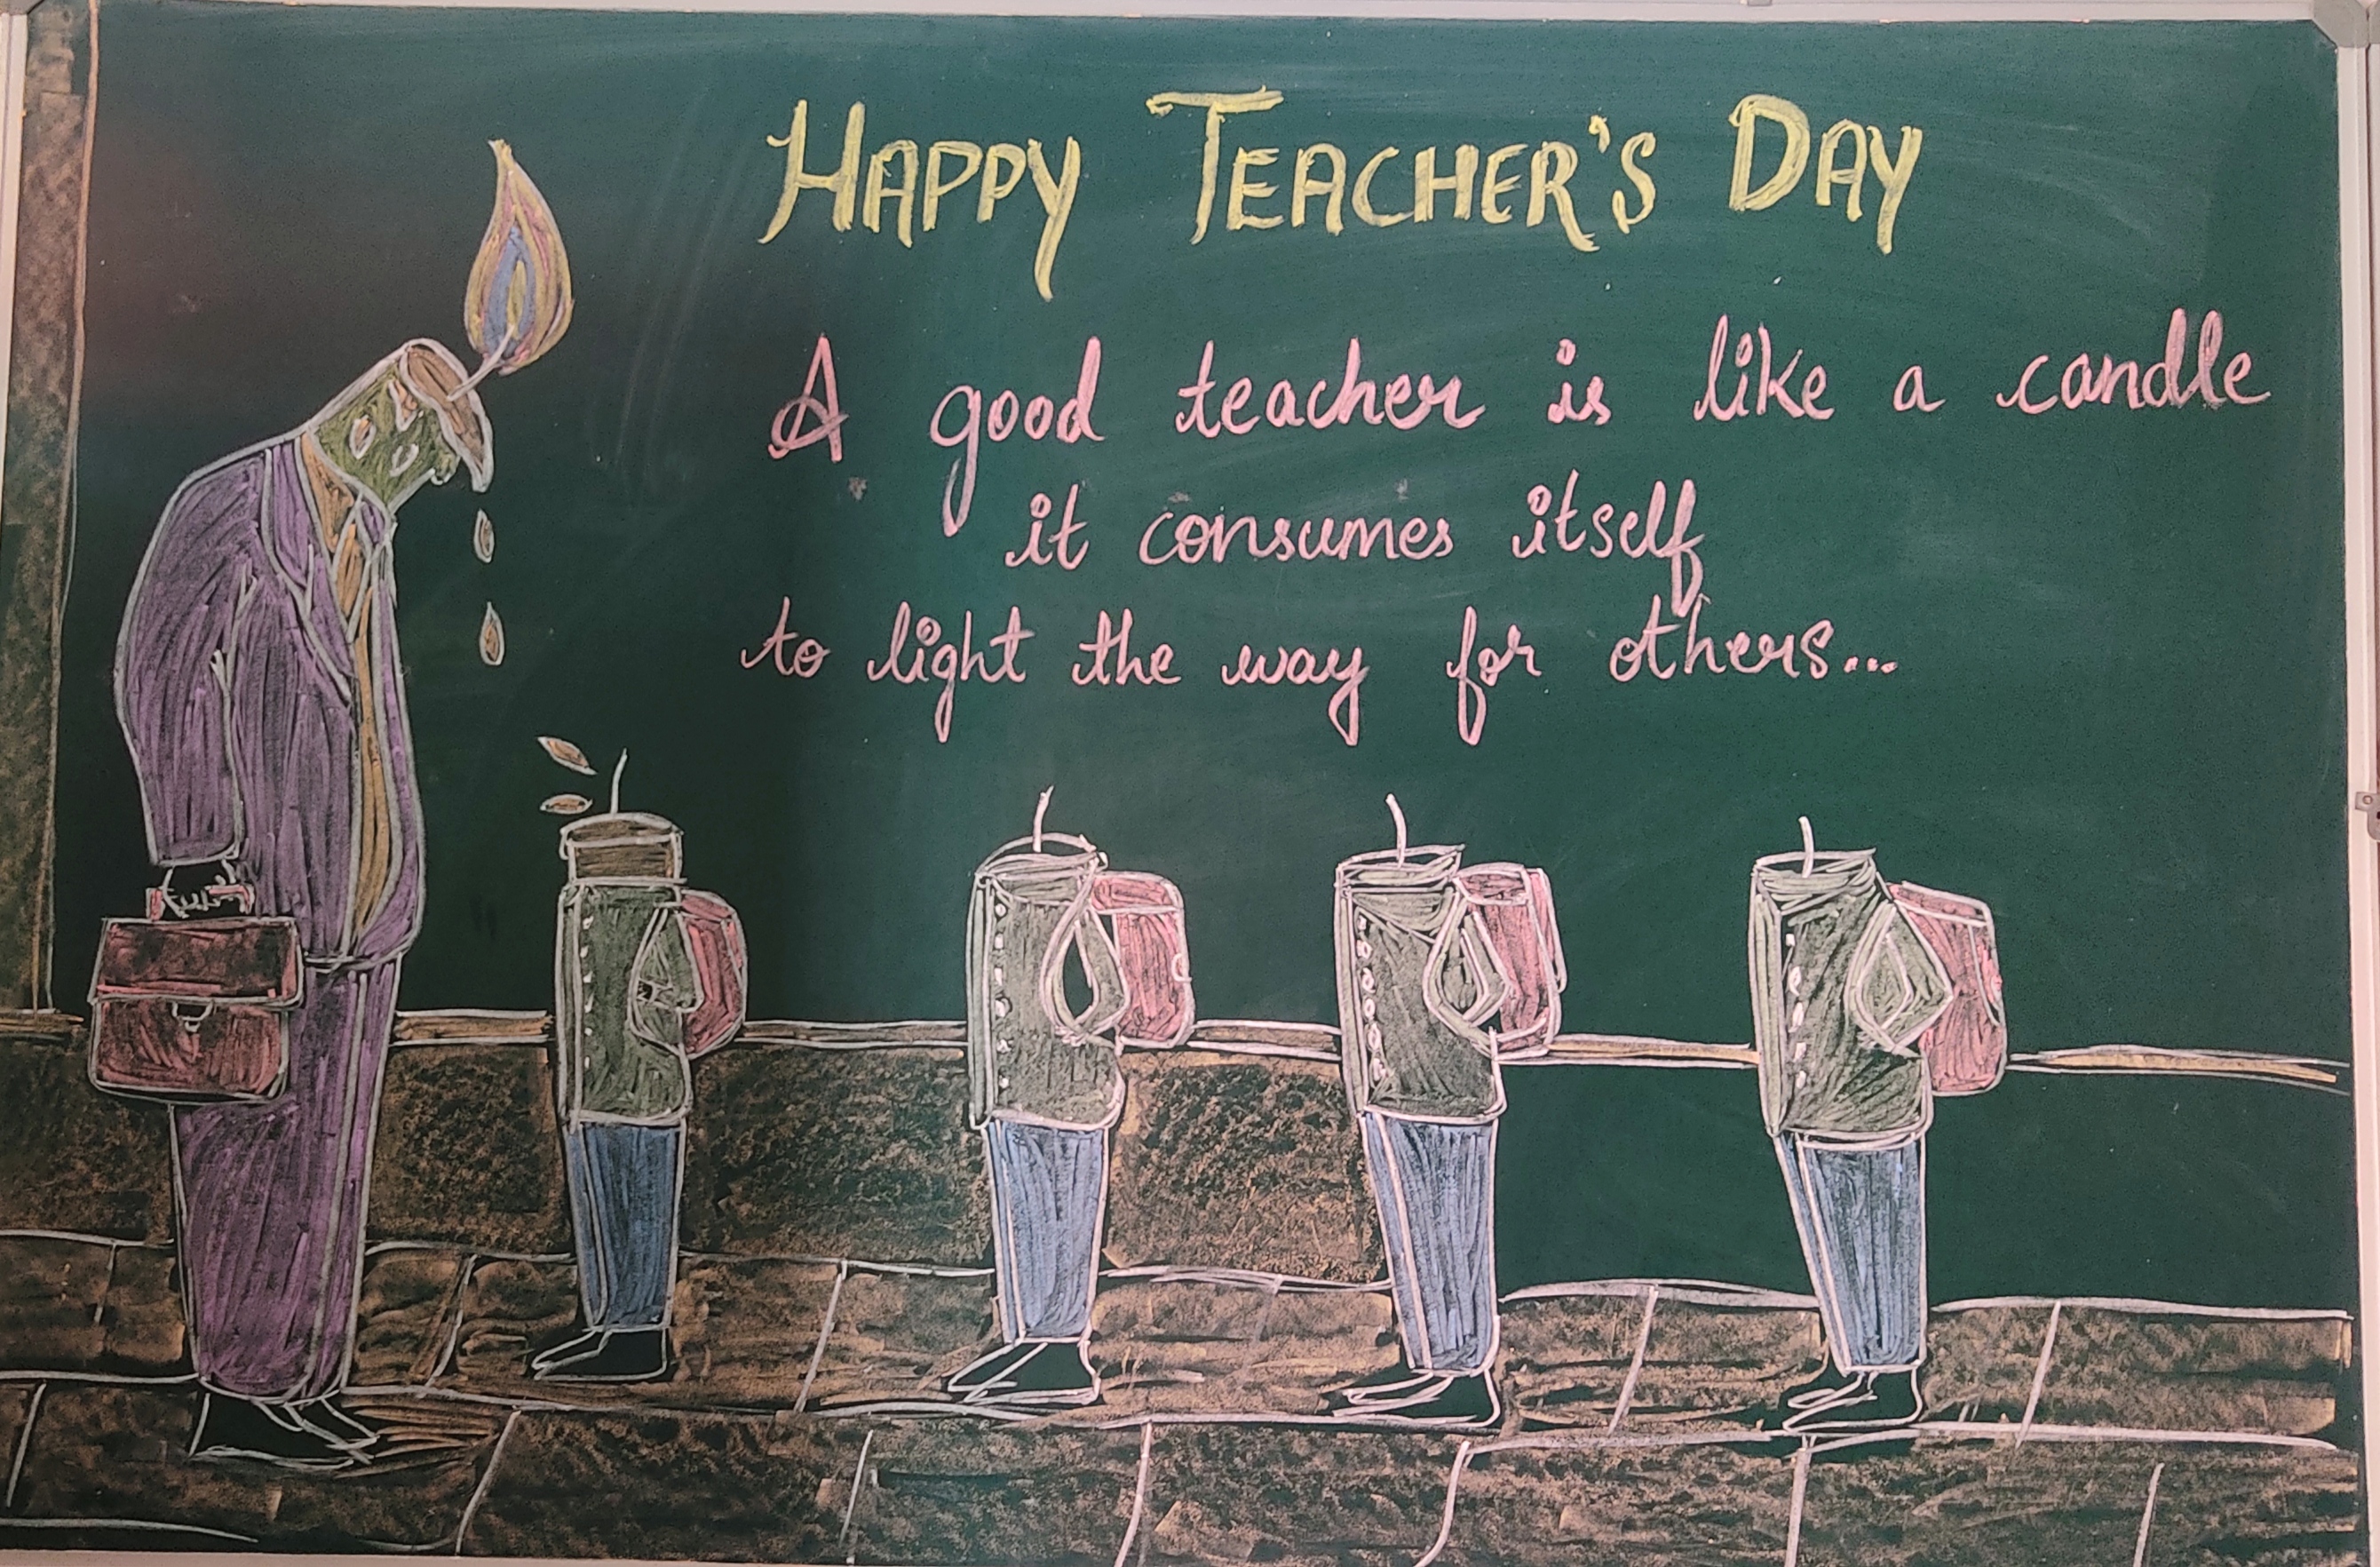 HAPPY TEACHER'S DAY
A good teacher is like a candle
it consumes itself
to light the way for others...